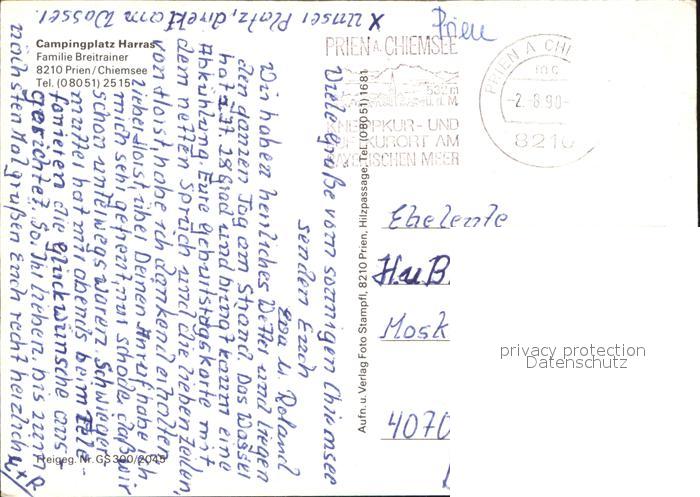 X Unser Platz, direkt am Wasser.
Prien
Campingplatz Harras
Familie Breitrainer
8210 Prien/Chiemsee
Tel. (08051) 2515
PRIEN A. CHIEMSEE
532 m
ü. d. M.
KNEIPPKUR- UND
LUFTKURORT AM
BAYRISCHEN MEER
PRIEN A CHI
mc
-2.-8.90-
8210
Viele Grüße vom sonnigen Chiemsee
senden Euch
Eva u. Roland
Wir haben herrliches Wetter und liegen
den ganzen Tag am Strand. Das Wasser
hat z.Zt. 28 Grad und bringt kaum eine
Abkühlung. Eure Geburtstagskarte mit
dem netten Spruch und die lieben Zeilen
von Horst habe ich dankend erhalten.
Lieber Horst, über Deinen Anruf habe ich
mich sehr gefreut, nur schade, daß wir
schon unterwegs waren. Schwieger-
mutter hat mir abends beim Tele-
fonieren die Glückwünsche aus-
gerichtet. So, Ihr Lieben, bis zum
nächsten Mal grüßen Euch recht herzlich
E + R
Aufn. u. Verlag Foto Stampfl, 8210 Prien, Hilzpassage, Tel. (08051) 1681
Freigeg. Nr. GS 300/2045
Eheleute
Huß
Mosk
4070
privacy protection
Datenschutz